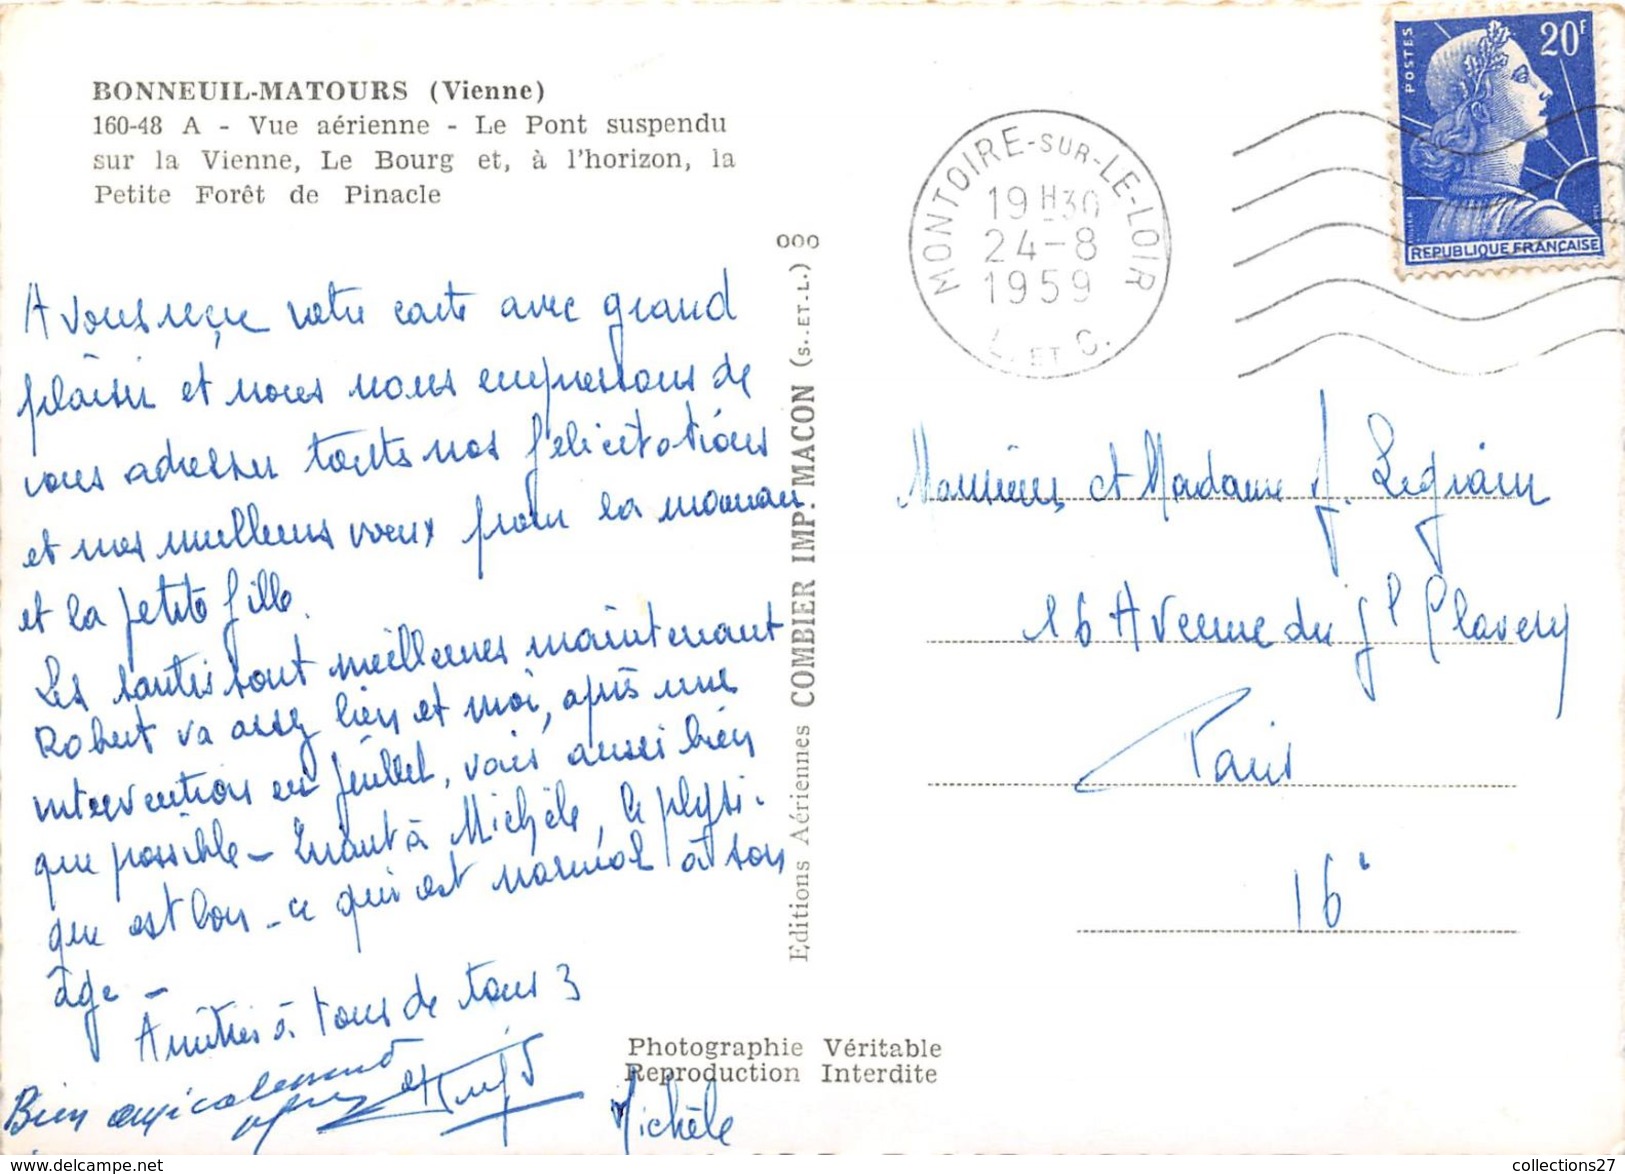 BONNEUIL-MATOURS (Vienne)
160-48 A - Vue aérienne - Le Pont suspendu
sur la Vienne, Le Bourg et, à l'horizon, la
Petite Forêt de Pinacle
A vous reçue votre carte avec grand
plaisir et nous nous empressons de
vous adresser toutes nos félicitations
et nos meilleurs voeux pour la maman
et la petite fille.
Les santés sont meilleures maintenant
Robert va assez bien et moi, après une
intervention en Juillet, vais aussi bien
que possible - Quant à Michèle, le physi-
que est bon - ce qui est normal à son
âge -
Amitiés à tous de tous 3
Bien amicalement
Michèle
000
Editions Aériennes COMBIER IMP. MACON (S.. ET. L.)
Photographie Véritable
Reproduction Interdite
MONTOIRE-SUR-LE-LOIR
19 H30
24-8
1959
L. ET C.
POSTES
20F
REPUBLIQUE FRANÇAISE
Monsieur et Madame J. Legrain
16 Avenue du Gl Clavery
Paris
16e
collections27